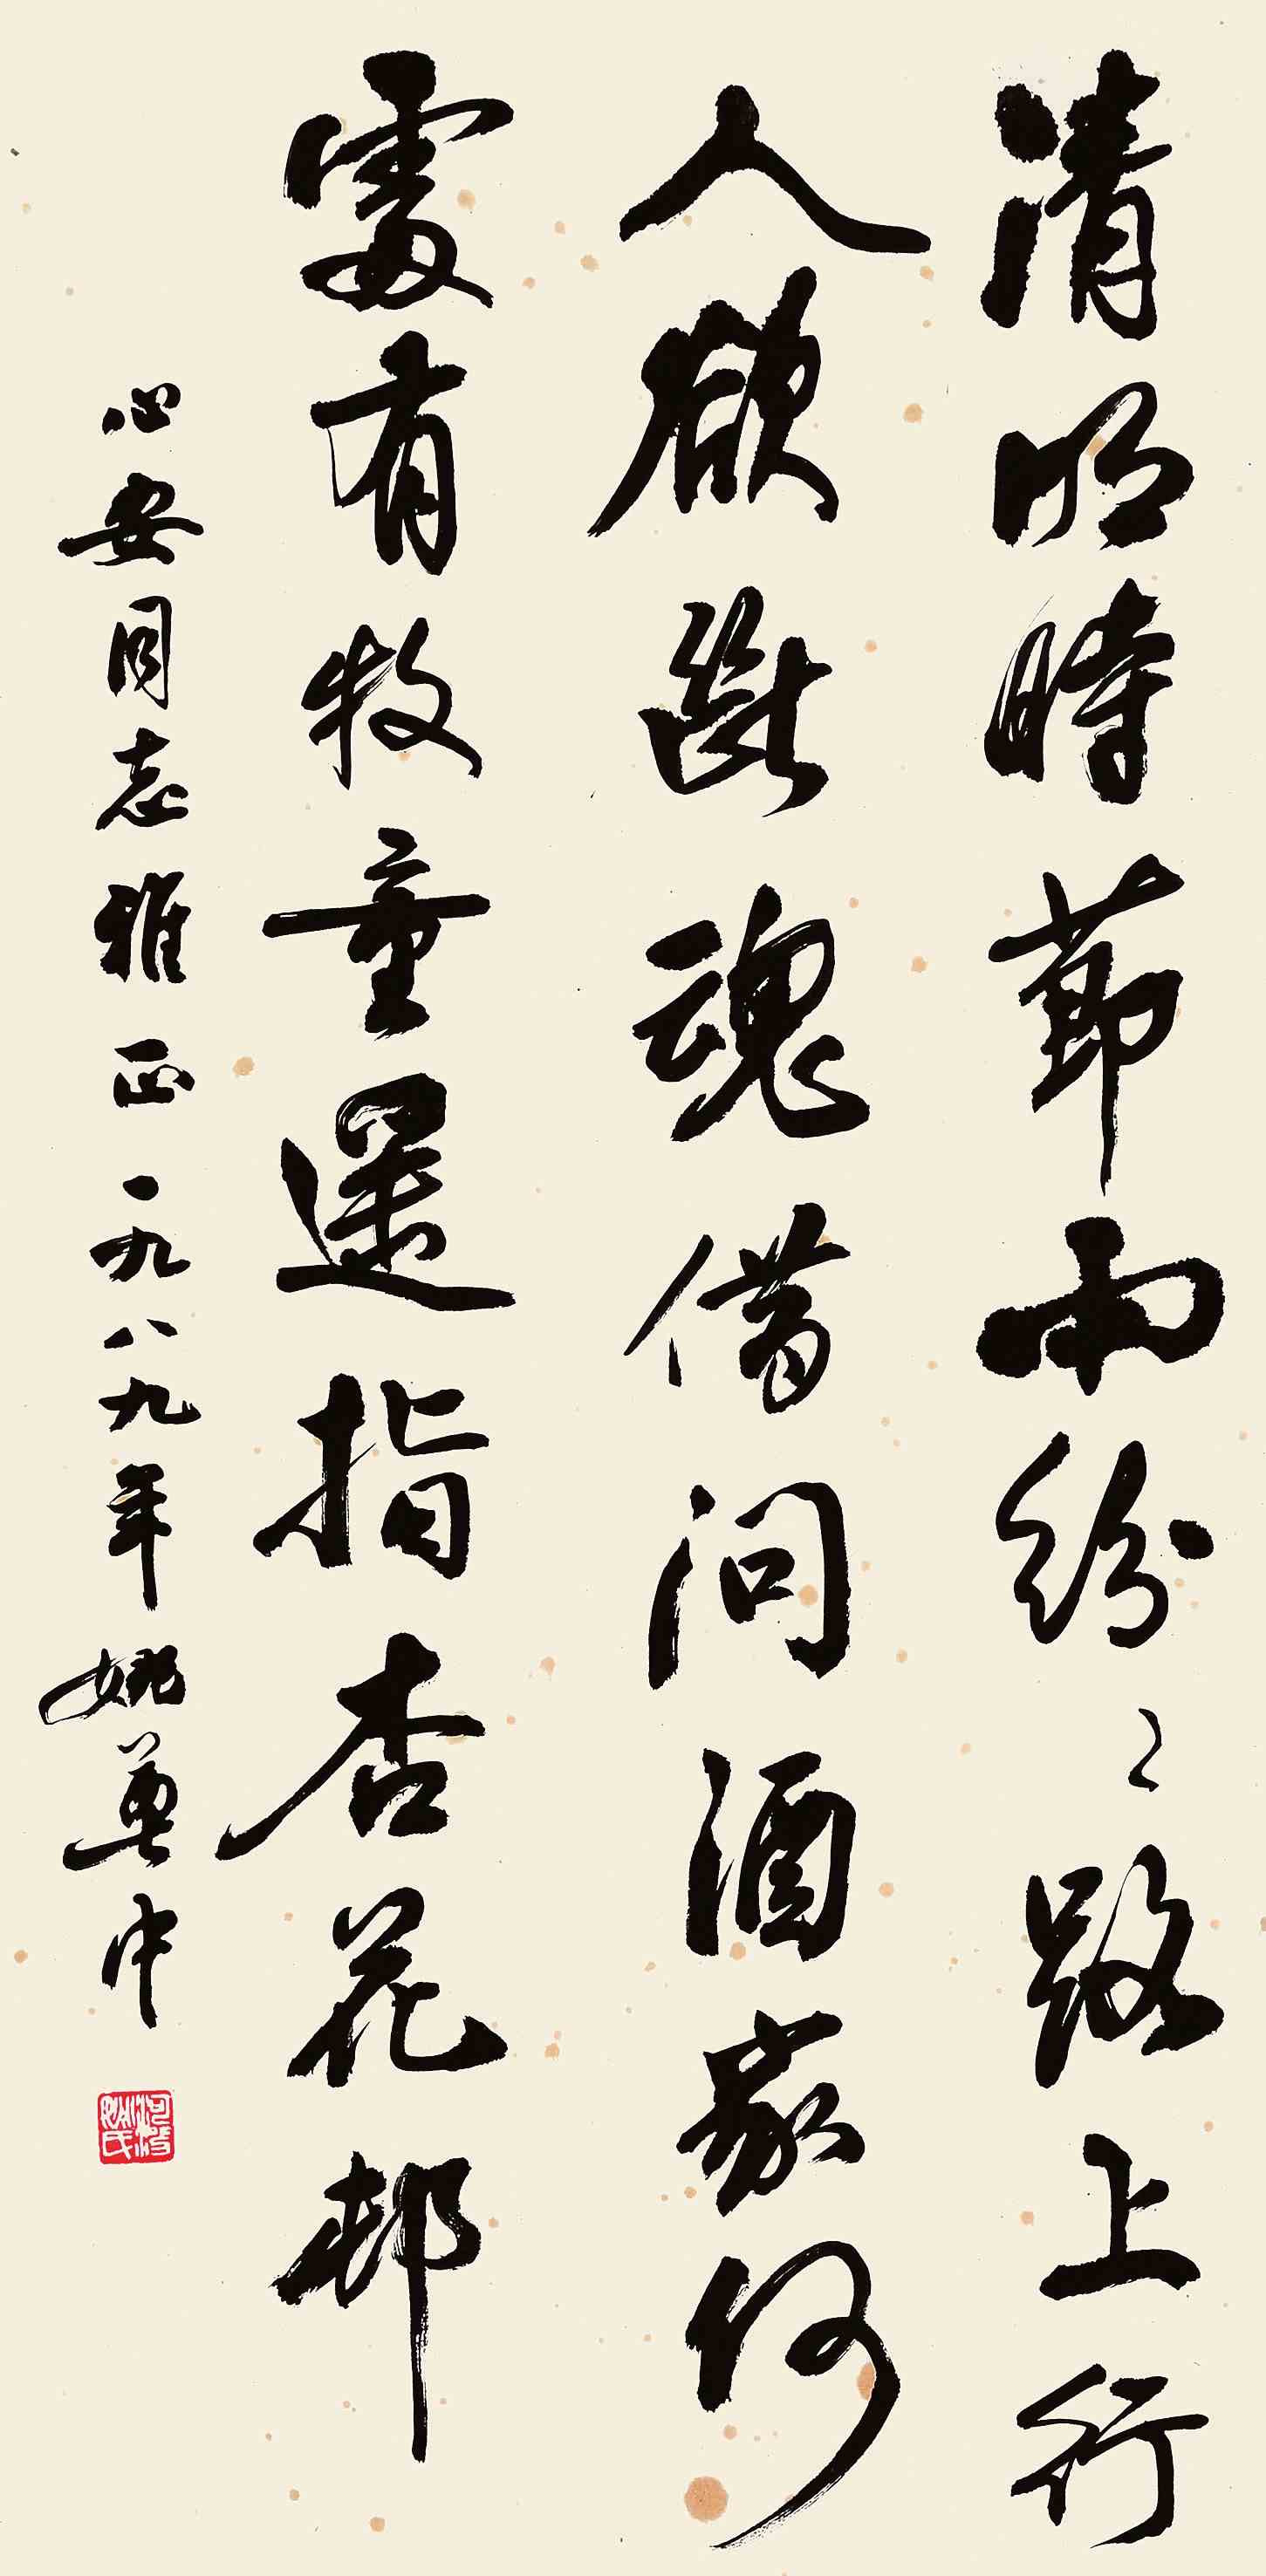 清明時節雨紛〻路上行
人欲斷魂借问酒家何
處有牧童遥指杏花邨
心安同志雅正一九八九年姚奠中